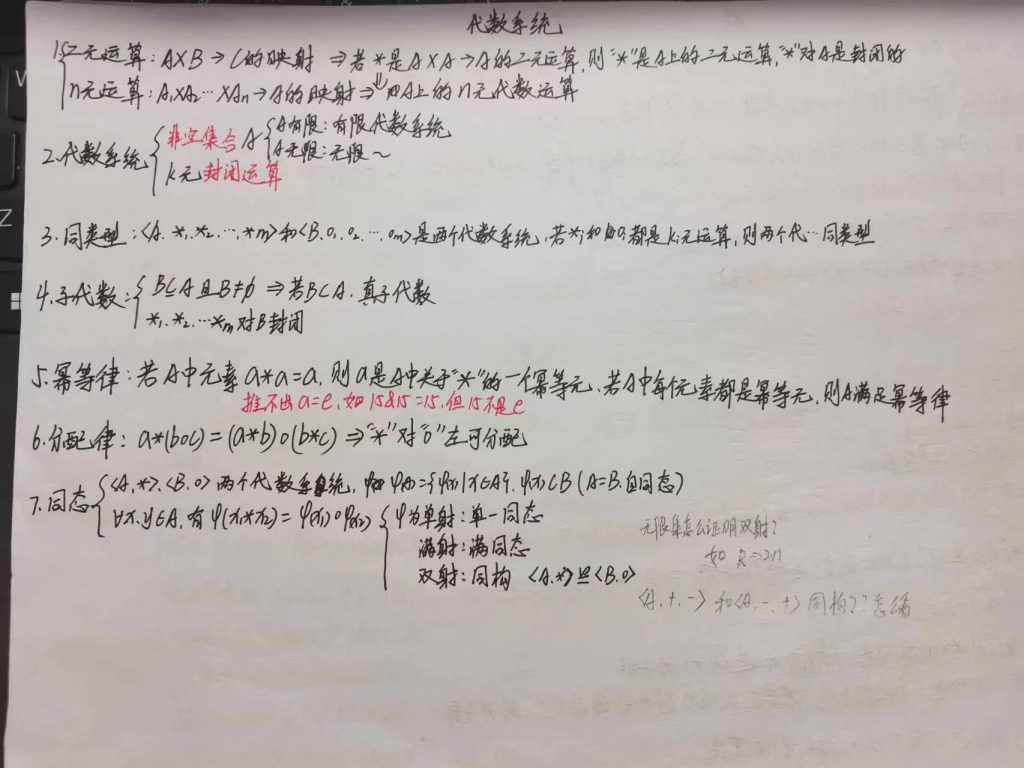 代数系统
1.二元运算：A×B→C的映射 ⇒若*是A×A→A的二元运算,则"*"是A上的二元运算,"*"对A是封闭的
n元运算：A₁×A₂…×Aₙ→A的映射⇒ A上的n元代数运算
2.代数系统 非空集合A A有限：有限代数系统
A无限：无限～
k元封闭运算
3.同类型：<A.*₁,*₂…,*m>和<B.o₁,o₂…,om>是两个代数系统,若*ᵢ和oᵢ都是kᵢ元运算,则两个代…同类型
4.子代数： B⊆A且B≠∅ ⇒若B⊂A.真子代数
*₁.*₂.…*m对B封闭
5.幂等律：若A中元素a*a=a,则a是A中关于"*"的一个幂等元.若A中每个元素都是幂等元,则A满足幂等律
推不出a=e,如15&15=15,但15不是e
6.分配律：a*(boc)=(a*b)o(b*c)⇒"*"对"o"左可分配
7.同态 <A,*>.<B.o>两个代数系统, φ(A)={φ(x)|x∈A}. φ(A)⊂B(A=B.自同态)
∀x.y∈A.有φ(x₁*x₂)=φ(x₁)oφ(x₂) φ为单射：单一同态
满射：满同态
双射：同构 <A.*>≌<B.o>
无限集怎么证明双射?
如 R→2n
<A.+.->和<A.-.+>同构??怎